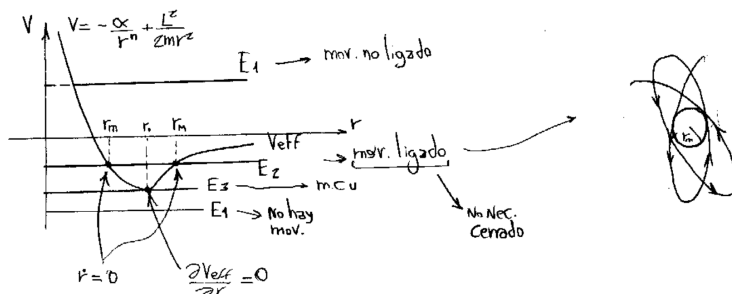 V V = -α/r^n + L²/2mr²
E1 → mov. no ligado
rm r. rM r
Veff
E2 → mov. ligado
E3 → m.c.u
E1 → No hay
mov.
No Nec.
Cerrado
ṙ = 0 ∂Veff/∂r = 0
rm